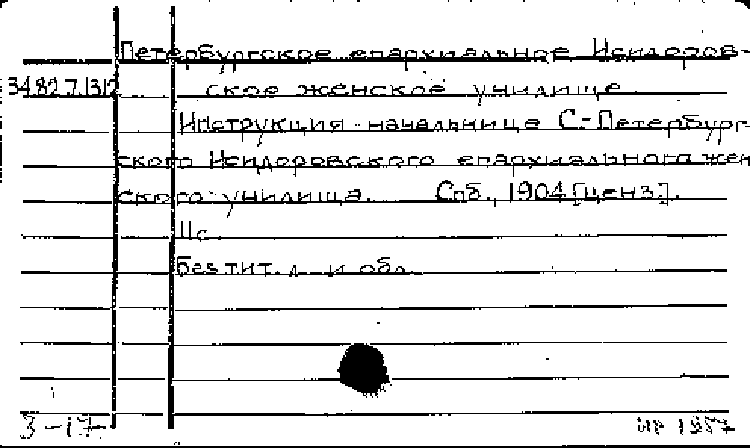 Петербургское епархиальное Исидоров-
34.82.7.1312 ское женское училище
Инструкция начальнице С-Петербург-
ского Исидоровского епархиального жен
ского училища. Спб., 1904 [ценз.].
11с.
без тит. л. и обл.
3-17 ир 1957